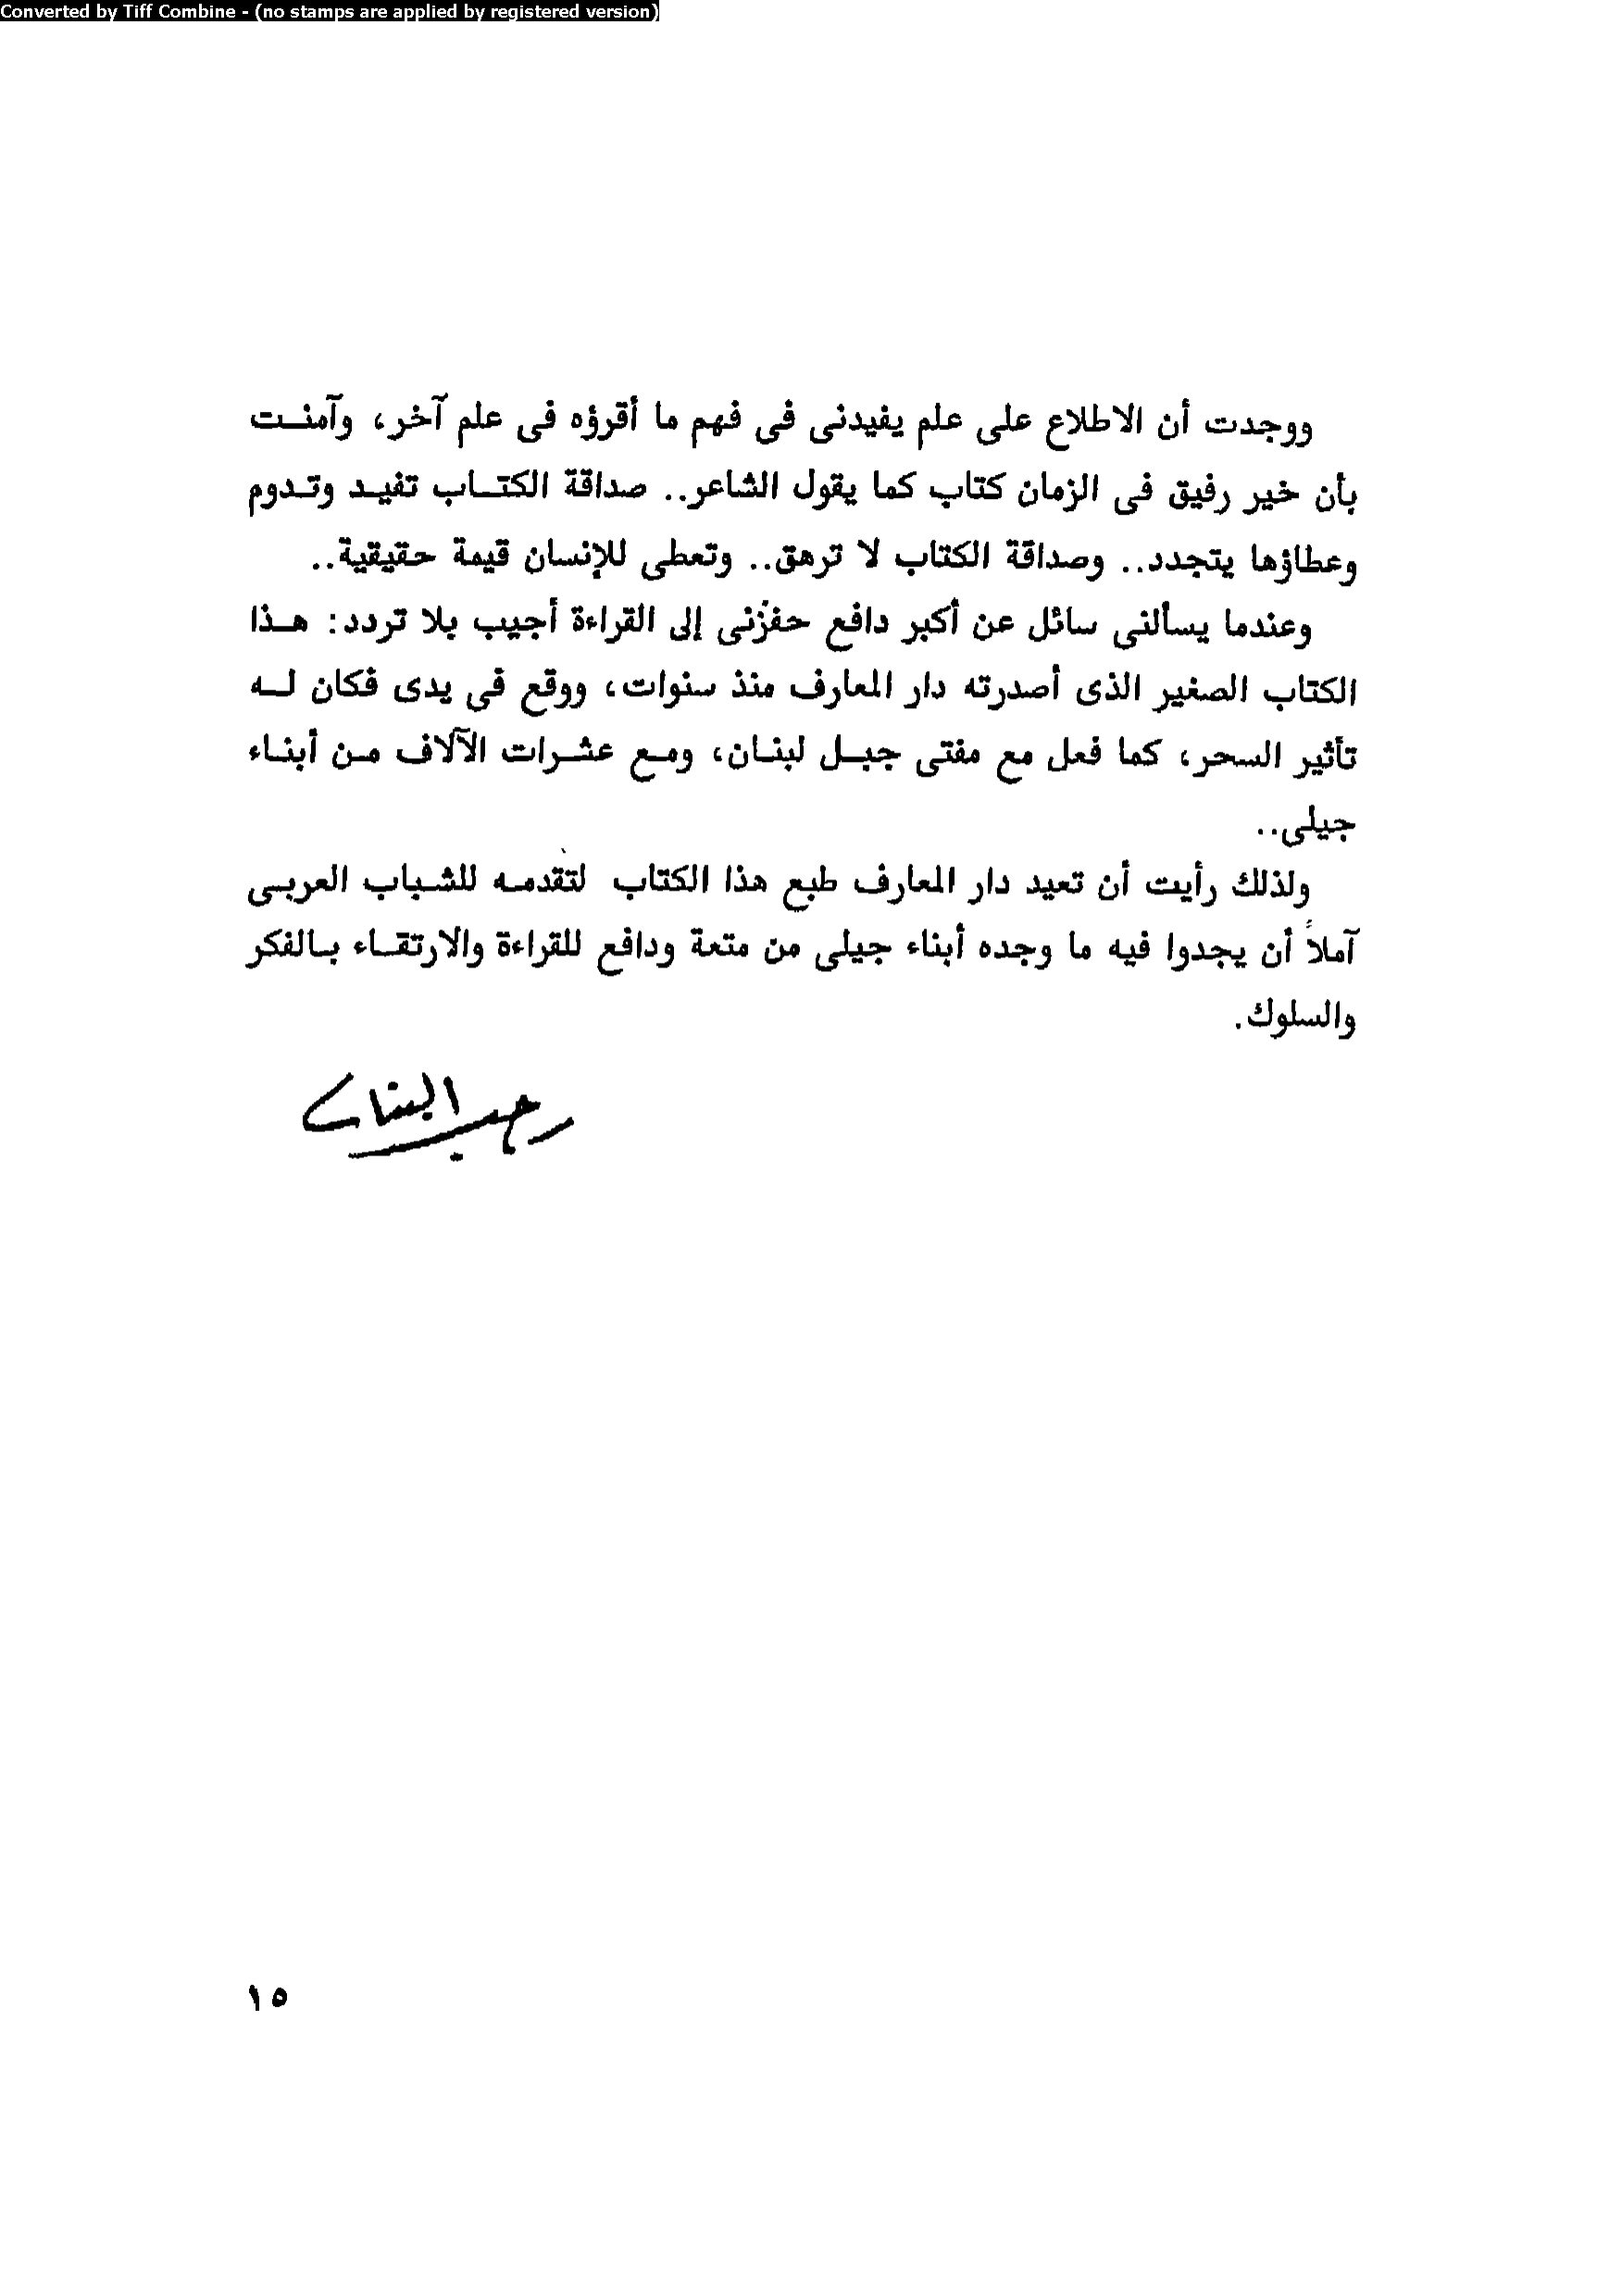 Converted by Tiff Combine - (no stamps are applied by registered version)
ووجدت أن الاطلاع على علم يفيدنى فى فهم ما أقرؤه فى علم آخر، وآمنت
بأن خير رفيق فى الزمان كتاب كما يقول الشاعر.. صداقة الكتاب تفيد وتدوم
وعطاؤها يتجدد.. وصداقة الكتاب لا ترهق.. وتعطى للإنسان قيمة حقيقية..
وعندما يسألنى سائل عن أكبر دافع حفزّنى إلى القراءة أجيب بلا تردد: هذا
الكتاب الصغير الذى أصدرته دار المعارف منذ سنوات، ووقع فى يدى فكان له
تأثير السحر، كما فعل مع مفتى جبل لبنان، ومع عشرات الآلاف من أبناء
جيلى..
ولذلك رأيت أن تعيد دار المعارف طبع هذا الكتاب لتقدمه للشباب العربى
آملاً أن يجدوا فيه ما وجده أبناء جيلى من متعة ودافع للقراءة والارتقاء بالفكر
والسلوك.
رجب البنا
١٥